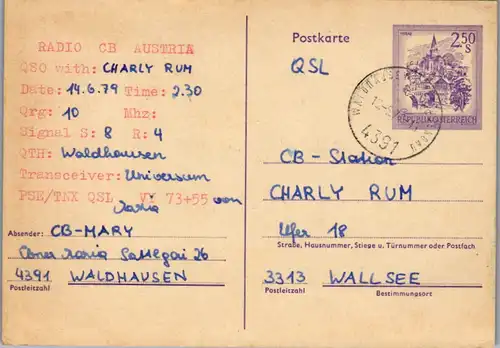 RADIO CB AUSTRIA
QSO with: CHARLY RUM
Date: 14.6.79 Time: 2.30
Qrg: 10 Mhz:
Signal S: 8 R: 4
QTH: Waldhausen
Transceiver: Universum
PSE/TNX QSL VY 73+55 von
Maria
Absender: CB-MARY
Maria 26
4391 WALDHAUSEN
Postleitzahl
Postkarte
QSL
2.50
S
REPUBLIK ÖSTERREICH
WALDHAUSEN
4391
CB-Station
CHARLY RUM
Ufer 18
Straße, Hausnummer, Stiege u. Türnummer oder Postfach
3313 WALLSEE
Postleitzahl Bestimmungsort